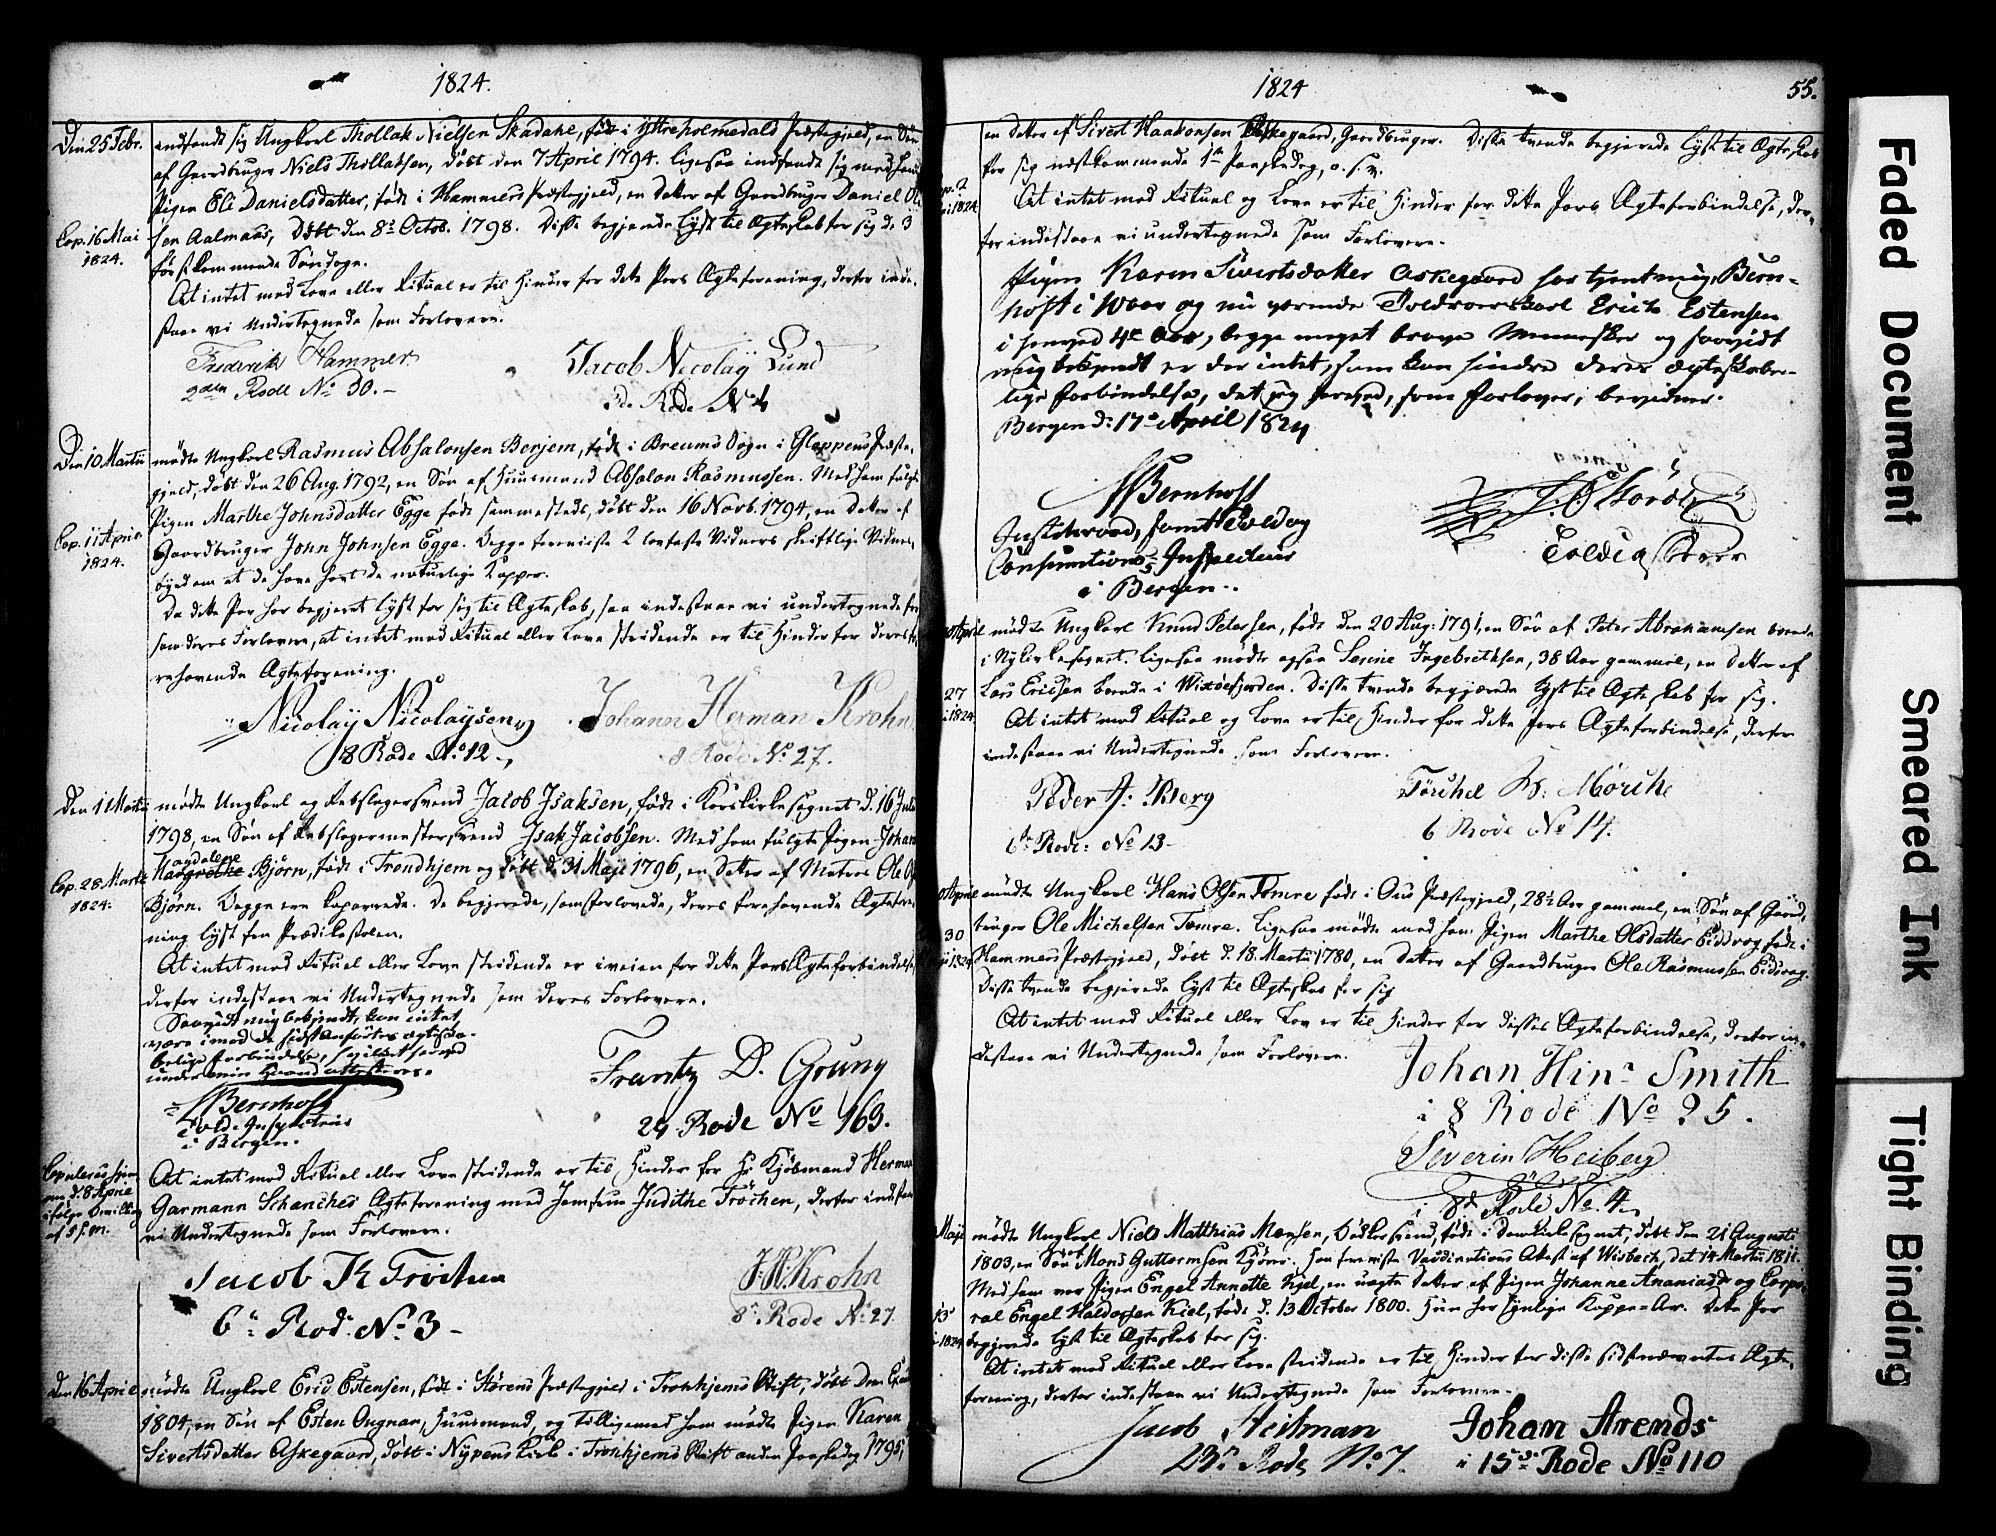 1824.
Den 25 Febr. indfandt sig Ungkarl Thollak Nielsen Skadahl, født i Yttreholmedals Præstegjeld, en Søn
af Gaardbruger Niels Thollaksen, døbt den 7 April 1794. ligesaa indfandt sig med ham
Pigen Eli Danielsdatter, født i Hammers Præstegjeld, en Datter af Gaardbruger Daniel Ol
sen Aalmaas, døbt den 8de Octob. 1798. Disse begjærede Lyst til Ægteskab for sig de 3
Cop. 16 Mai
1824.
førstkommende Søndage.
At intet mod Love eller Ritual er til Hinder for dette Pars Ægteforening, derfor inde-
staae vi Undertegnede som Forlovere.
Frederik Hammer
2den Rode No 30.-
Jacob Nicolaÿ Lund
3de Rode No 4
Den 10 Martii mødte Ungkarl Rasmus Absalonsen Berjem, født i Breums Sogn i Gloppens Præste-
gjeld, døbt den 26 Aug. 1792, en Søn af Huusmand Absalon Rasmussen. Med ham fulgte
Pigen Marthe Johnsdatter Egge født sammesteds, døbt den 16 Novb. 1794, en Datter af
Cop. 11 April
1824.
Gaardbruger John Johnsen Egge. Begge foreviiste 2 lovfaste Vidners skriftlige Vidnes-
byrd om at de have havt de naturlige Kopper.
Da dette Par har begjæret Lyst for sig til Ægteskab, saa indestaae vi undertegnede for
som deres Forlovere, at intet mod Ritual eller Love stridende er til Hinder for deres fo
rehavende Ægteforening.
Nicolaÿ Nicolaysen
18 Rode No 12
Johann Herman Krohn
8 Rode No 27.
Den 11 Martii mødte Ungkarl og Rebslagersvend Jacob Isaksen, født i Korskirkesognet d. 16 Julii
1798, en Søn af Rebslagermestersvend Isak Jacobsen. Med ham fulgte Pigen Johan
agdalene
Cop. 28 Martii
1824.
Margrethe Bjørn, født i Trondhjem og døbt d. 31 Maji 1796, en Datter af Matros Ole
Bjørn. Begge ere koparrede. De begjærede, som forlovede, deres forehavende Ægtefore-
ning lyst fra Prædikestolen.
At intet mod Ritual eller Love stridende er iveien for dette Pars Ægteforbindelse
derfor indestaae vi Undertegnede som deres Forlovere.
Saavidt mig bekjendt, kan intet
være imod de sidstanførtes ægteska-
belige forbindelse, hvilket herved
under min Haand attesteres.
Bernhoft
Told-Inspecteur
i Bergen.
Frantz D. Gruny
24 Rode No 163.
Copuleres hjem
me d. 8 April
ifølge Bevilling
af
At intet mod Ritual eller Love stridende er til Hinder for Hr Kjøbmand Herman
Garmann Schanches Ægteforening med Jomfrue Judithe Tröchen, derfor indestaae
vi Undertegnede som Forlovere.
Jacob K Tröchen
6te Rode No 3-
H. Krohn
8de Rode No 27.
Den 16 April mødte Ungkarl Erid Estensen, født i Størens Præstegjeld i Tronhjems Stift, døbt den
1804, en Søn af Esten Ougnan, Huusmand, og tilligemed ham mødte Pigen Karen
Sivertsdatter Askegaard, døbt i Nypens Kirke i Tronhjems Stift anden Paaskedag 1795,
1824
55.
en Datter af Sivert Haakonsen Askegaard, Gaardbruger. Disse tvende begjærede Lyst til Ægteskab
for sig næstkommende 1ste Paaskedag, o. s. v.
1824
At intet mod Ritual og Love er til Hinder for dette Pars Ægteforbindelse, der-
for indestaae vi undertegnede som Forlovere.
Pigen Karen Sivertsdatter Askegaard har tjent mig, Bern-
hoft i Aar og nu værende Toldroerskarl Erich Estensen
i henved 4re Aar, begge meget brave Mennesker og saavidt
mig bekjendt er der intet, som kan hindre deres ægteskabe-
lige forbindelse, det jeg herved, som Forlover, bevidner.
Bergen d: 17de April 1824
Bernhoft
Justitsraad, samt Told og
Consumtions-Inspecteur
i Bergen.
Toldeg
April mødte Ungkarl Knud Petersen, født den 20 Aug: 1791, en Søn af Peter Abrahamsen boende
i Nykirkesognet. Ligesaa mødte ogsaa Serine Ingebrethsen, 38 Aar gammel, en Datter af
27
i 1824
Lars Ericsen boende i Wixøefjorden. Disse tvende begjærede Lyst til Ægteskab for sig.
At intet mod Ritual og Love er til Hinder for dette Pars Ægteforbindelse, derfor
indestaae vi Undertegnede som Forlovere.
Peder A: Berg
6te Rode: No 13-
Törchel W: Mörche
6 Rode No 14.
April mødte Ungkarl Hans Olsen Tomre født i Ous Præstegjeld, 28½ Aar gammel, en Søn af Gaard-
bruger Ole Michelsen Tomre. Ligesaa mødte med ham Pigen Marthe Olsdatter Eidsvog født i
30
1824
Hammers Præstegjeld, døbt d. 18. Martii 1780, en Datter af Gaardbruger Ole Rasmussen Eidsvog.
Disse tvende begjærede Lyst til Ægteskab for sig
At intet mod Ritual eller Lov er til Hinder for disses Ægteforbindelse, derfor in-
destaae vi Undertegnede som Forlovere.
Johan Hinr Smith
i 8 Rode No 25.
Severin Heiberg
i 8de Rode No 4
Maji mødte Ungkarl Niels Matthias Monsen, Bødkersvend, født i Domkirkesognet, døbt den 21 Augusti
1803, en Søn af Mons Guttormsen Kjönn. Han foreviste Vaccinations Attest af Wisbech, dat. 14 Martii 1811.
Med ham var Pigen Engel Annette Kjel, en uægte Datter af Pigen Johanne Ananiasdr og Corpo-
ral Engel Haldorsen Kiel, født d. 13 October 1800. Hun har synlige Koppe-Ar. Dette Par
13
1824
begjærede Lyst til Ægteskab for sig.
At intet mod Ritual eller Love stridende er til Hinder for disse sidstnævntes Ægte-
forening, derfor indestaae vi Undertegnede som Forlovere.
Jacob Heilman
23de Rode No. 7.
Johan Arends
i 15de Rode No 110
Faded Document
Smeared Ink
Tight Binding